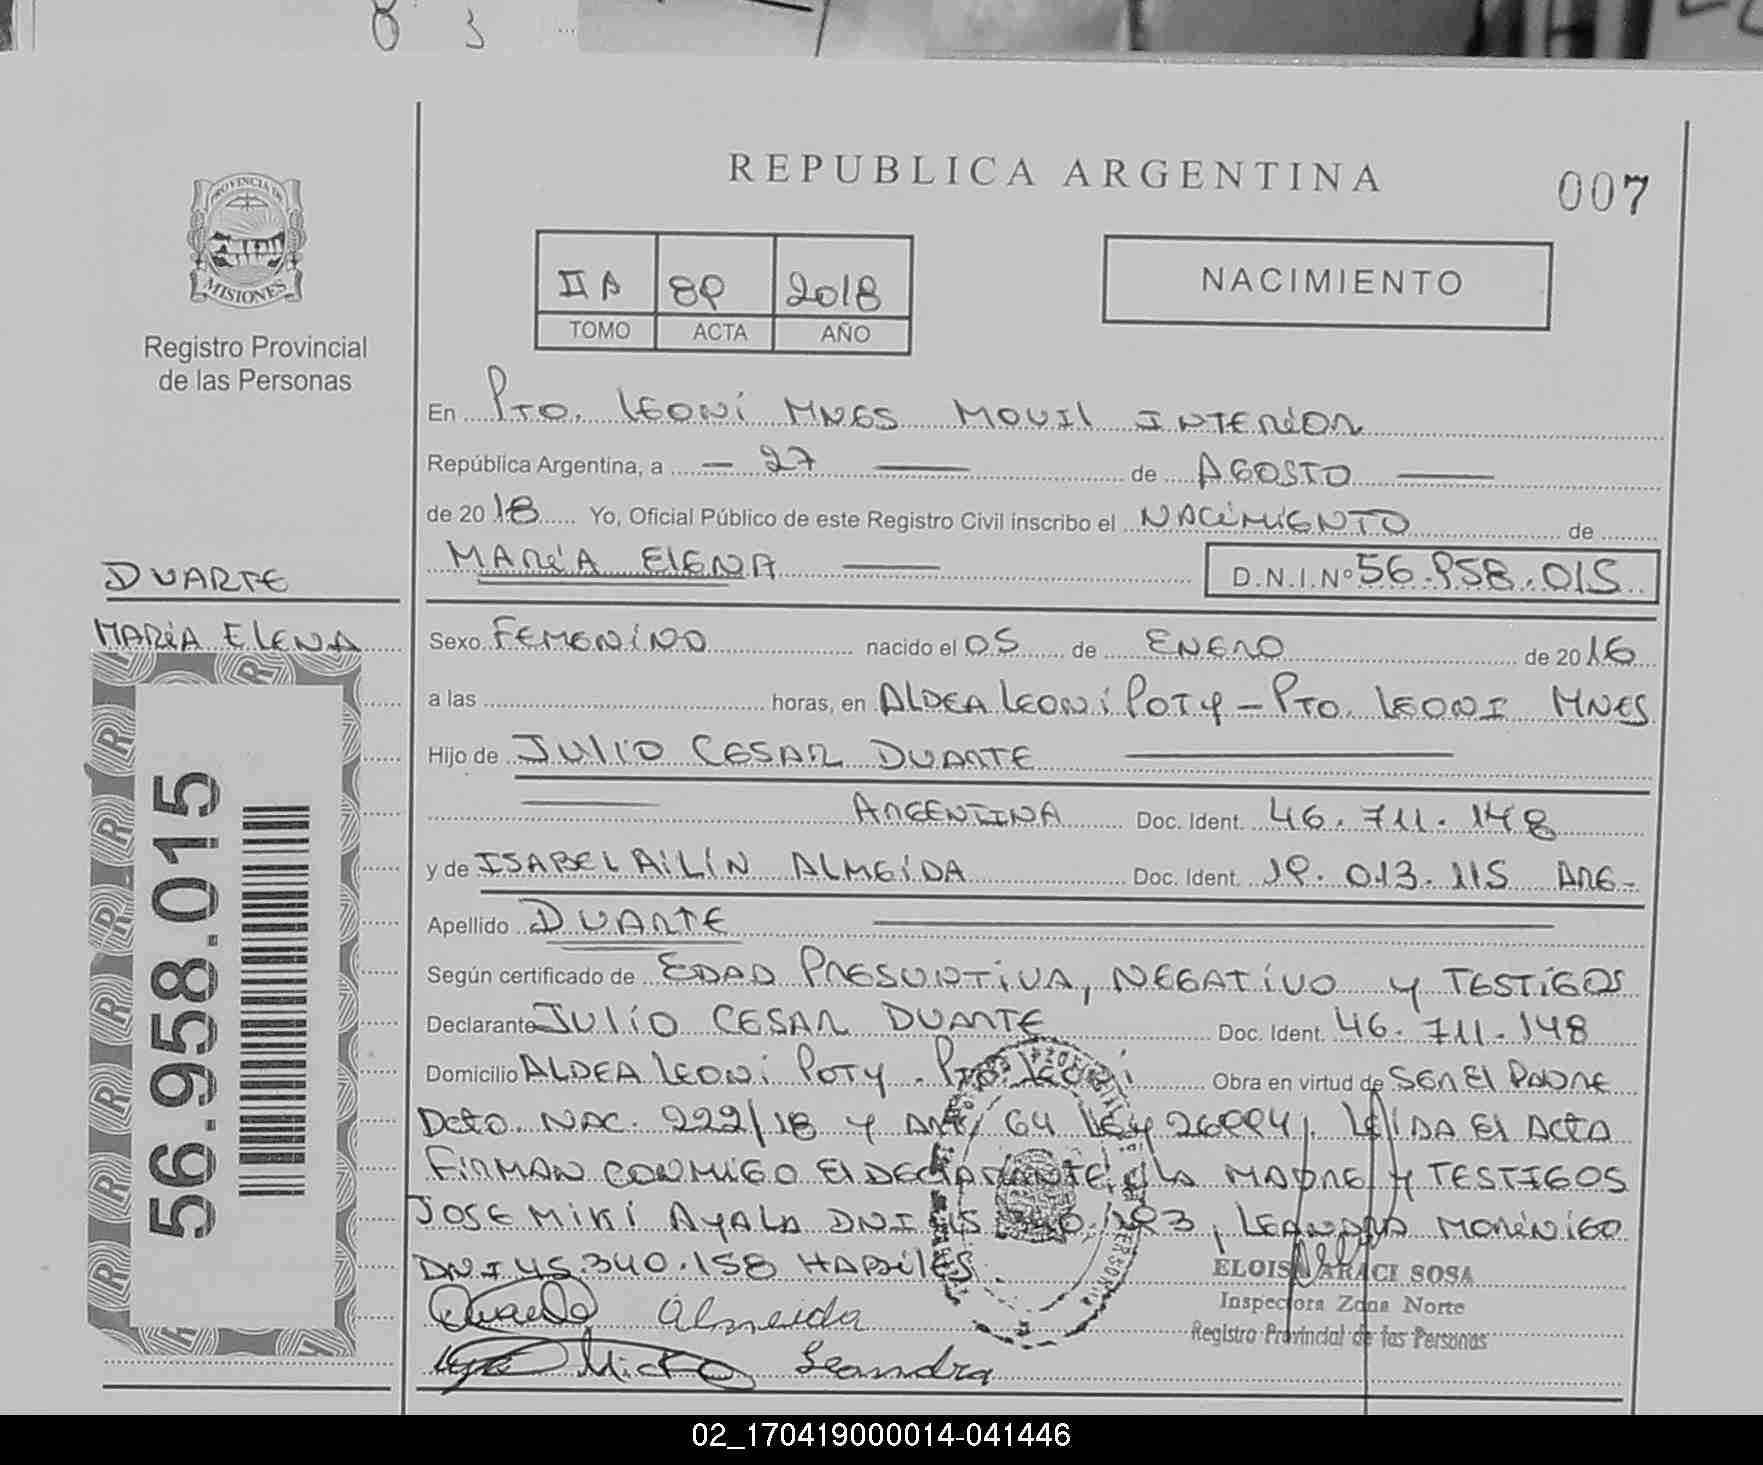 8 3
PROVINCIA DE
MISIONES
Registro Provincial
de las Personas
REPUBLICA ARGENTINA
007
IIA 89 2018
TOMO ACTA AÑO
NACIMIENTO
En Pto. Leoni Mnes Movil Interior
República Argentina, a - 27 — de Agosto —
de 2018 Yo, Oficial Público de este Registro Civil inscribo el Nacimiento de
María Elena — D.N.I.Nº 56.958.015
DUARTE
María Elena
Sexo Femenino nacido el 05 de Enero de 2016
a las horas, en Aldea Leoni Poty - Pto. Leoni Mnes
Hijo de Julio Cesar Duarte —
— Argentina Doc. Ident. 46.711.148
y de Isabel Ailín Almeida Doc. Ident. 19.013.115 Arg-
Apellido Duarte —
Según certificado de Edad Presuntiva, Negativo y Testigos
Declarante Julio Cesar Duarte Doc. Ident. 46.711.148
Domicilio Aldea Leoni Poty. Pto. Leoni Obra en virtud de ser el Padre
Dcto. Nac. 222/18 y Art. 64 Ley 26994. Leída el Acta
Firman conmigo el declarante, la madre y testigos
Jose Miki Ayala DNI, Leandra Morínigo
DNI 45.340.158 Habiles.
Duarte Almeida
ELOISA ARACI SOSA
Inspectora Zona Norte
Registro Provincial de las Personas
Leandra
56.958.015
02_170419000014-041446